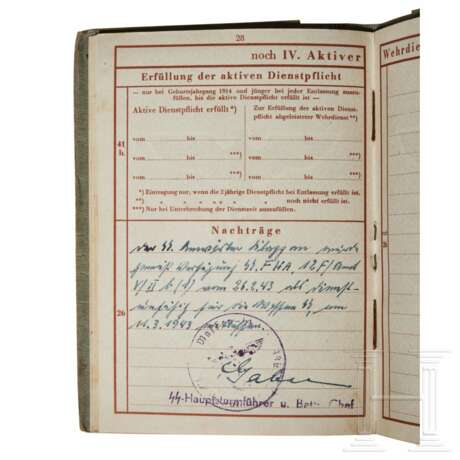 28
noch IV. Aktiver
Wehrdie
Erfüllung der aktiven Dienstpflicht
— nur bei Geburtsjahrgang 1914 und jünger bei jeder Entlassung auszu-
füllen, bis die aktive Dienstpflicht erfüllt ist —
Aktive Dienstpflicht erfüllt*)
Zur Erfüllung der aktiven Dienst-
pflicht abgeleisteter Wehrdienst**)
41
h.
vom bis
vom bis ***)
vom bis
vom bis ***)
vom bis ***)
vom bis ***)
*) Eintragung nur, wenn die 2jährige Dienstpflicht bei Entlassung erfüllt ist.
**) " " " " " " noch nicht erfüllt ist.
***) Nur bei Unterbrechung der Dienstzeit auszufüllen.
Nachträge
26
der SS Anwärter wurde
gemäß Verfügung SS. F.H.A. 12 F/
V/II vom 26.2.43 als dienst-
unfähig für die Waffen SS, am
11.3.1943 entlassen.
SS-Hauptsturmführer u. Battr. Chef